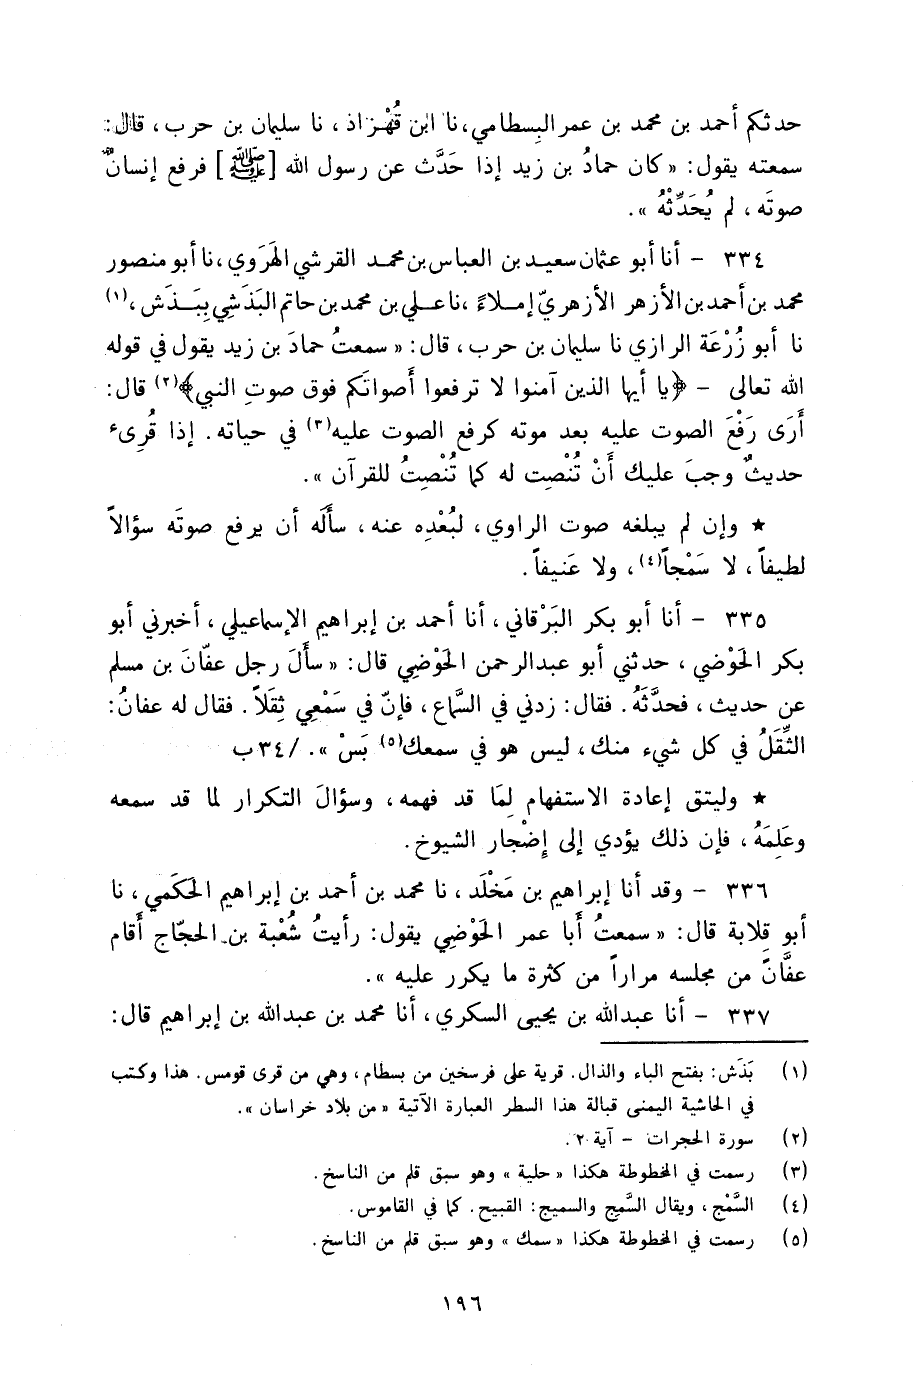 حدثكم أحمد بن محمد بن عمر البِسطامي، نا ابن قُهْزاذ، نا سليمان بن حرب، قال:
سمعته يقول: «كان حمادُ بن زيد إذا حَدَّث عن رسول الله [ﷺ] فرفع إنسانٌ
صوتَه، لم يُحَدِّثْهُ».
٣٣٤ – أنا أبو عثمان سعيد بن العباس بن محمد القرشي الهَرَوي، نا أبو منصور
محمد بن أحمد بن الأزهر الأزهريّ إملاءً، نا علي بن محمد بن حاتم البَذَشي بِبَذَش،(١)
نا أبو زُرْعَة الرازي نا سليمان بن حرب، قال: «سمعتُ حمادَ بن زيد يقول في قوله
الله تعالى – ﴿يا أيها الذين آمنوا لا ترفعوا أصواتَكم فوق صوتِ النبي﴾(٢) قال:
أَرَى رَفْعَ الصوت عليه بعد موته كرفع الصوت عليه(٣) في حياته. إذا قُرِىء
حديثٌ وجبَ عليك أَنْ تُنْصِت له كما تُنْصِتُ للقرآن».
★ وإن لم يبلغه صوت الراوي، لبُعْدِه عنه، سأَله أن يرفع صوتَه سؤالاً
لطيفاً، لا سَمْجاً(٤)، ولا عَنيفاً.
٣٣٥ – أنا أبو بكر البَرْقاني، أنا أحمد بن إبراهيم الإسماعيلي، أخبرني أبو
بكر الحَوْضي، حدثني أبو عبدالرحمن الحَوْضِي قال: «سأَلَ رجل عفّانَ بن مسلم
عن حديث، فحدَّثَهُ. فقال: زدني في السَّماع، فإنّ في سَمْعي ثِقَلاً. فقال له عفانُ:
الثِّقَلُ في كل شيء منك، ليس هو في سمعك(٥) بَسْ». /٣٤ ب
★ وليتق إعادة الاستفهام لِمَا قد فهمه، وسؤالَ التكرار لما قد سمعه
وعَلِمَهُ، فإن ذلك يؤدي إلى إضْجار الشيوخ.
٣٣٦ – وقد أنا إبراهيم بن مَخْلَد، نا محمد بن أحمد بن إبراهيم الحَكَمي، نا
أبو قِلابة قال: «سمعتُ أَبا عمر الحَوْضِي يقول: رأيتُ شُعْبة بن الحجّاج أَقام
عفَّانَ من مجلسه مراراً من كثرة ما يكرر عليه».
٣٣٧ – أنا عبدالله بن يحيى السكري، أنا محمد بن عبدالله بن إبراهيم قال:
(١) بَذَش: بفتح الباء والذال. قرية على فرسخين من بسطام، وهي من قرى قومس. هذا وكتب
في الحاشية اليمنى قبالة هذا السطر العبارة الآتية «من بلاد خراسان».
(٢) سورة الحجرات – آية ٢.
(٣) رسمت في المخطوطة هكذا «حلية» وهو سبق قلم من الناسخ.
(٤) السَّمْج، ويقال السَّمِج والسميج: القبيح. كما في القاموس.
(٥) رسمت في المخطوطة هكذا «سمك» وهو سبق قلم من الناسخ.
١٩٦